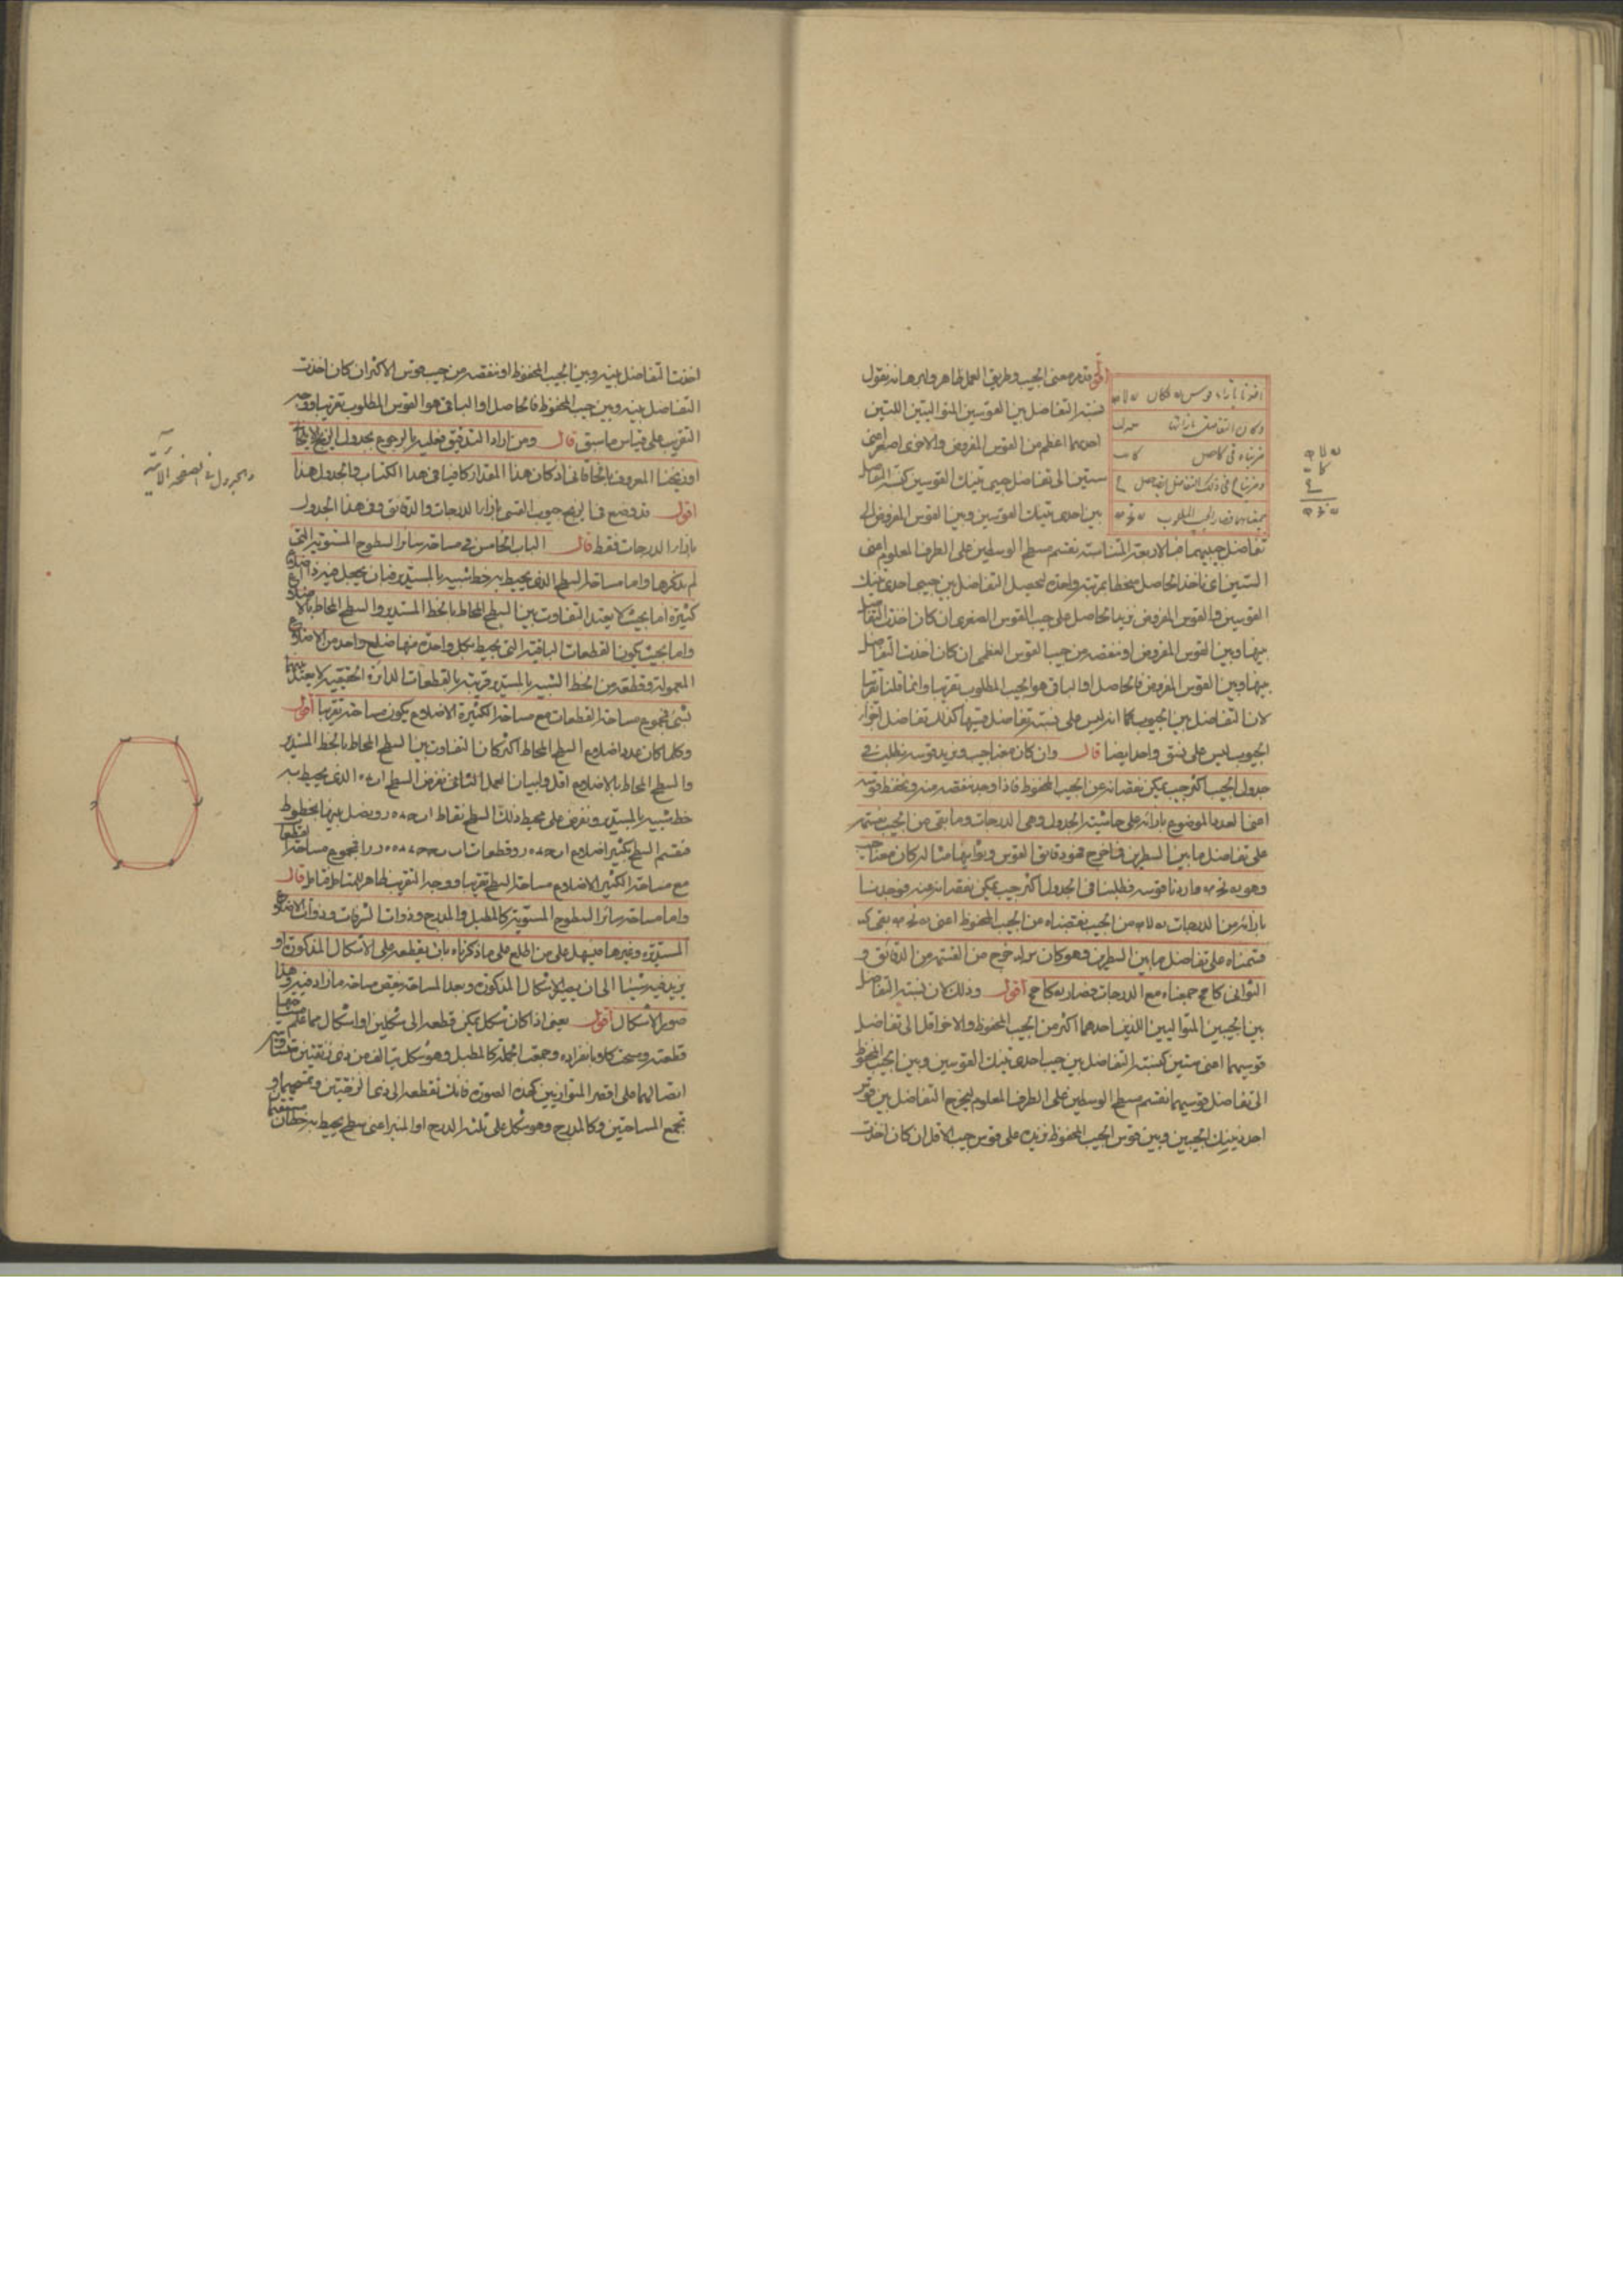 اقول قد مر معنى الجيب وطريق العمل ظاهر وبرهانه نقول
نسبة التفاضل بين القوسين المتواليتين اللتين
احديهما اعظم من القوس المفروض والاخرى اصغر اعنى
ستين الى تفاضل جيبى تينك القوسين كنسبة التفاضل
بين احدى تينك القوسين وبين القوس المفروض الى
تفاضل جيبيهما فبالاربعة المتناسبة نقسم مسطح الوسطين على الطرف المعلوم اعنى
الستين اى ناخذ الحاصل منحطا بمرتبة واحدة ليحصل التفاضل بين جيبى احدى تينك
القوسين والقوس المفروض نزيد الحاصل على جيب القوس الصغرى ان كان اخذت التفاضل
بينها وبين القوس المفروض او ننقصه من جيب القوس العظمى ان كان اخذت التفاضل
بينها وبين القوس المفروض فالحاصل او الباقى هو الجيب المطلوب تقريبا وانما قلنا تقريبا
لان التفاضل بين الجيوب كما انه ليس على نسبة تفاضل قسيها كذلك تفاضل اجزاء
الجيوب ليس على نسق واحد ايضا قال وان كان معنا جيب ونريد قوسه نطلب فى
جدول الجيب اكثر جيب يمكن نقصانه عن الجيب المحفوظ فاذا وجد ننقصه منه ونحفظ قوسه
اعنى العدد الموضوع بازائه على حاشية الجدول وهى الدرجات وما بقى من الجيب نقسمه
على تفاضل ما بين السطرين فما خرج فهو دقايق القوس وثوانيها مثاله كان معنا جيب
وهو اردنا قوسه فطلبنا فى الجدول اكثر جيب يمكن نقصانه عنه فوجدنا
بازائه من الدرجات من الجيب نقصناه من الجيب المحفوظ اعنى بقى
قسمناه على تفاضل ما بين السطرين وهو كان خرج من القسمة من الدقائق و
الثوانى جمعناه مع الدرجات فصار اقول وذلك لان نسبة التفاضل
بين الجيبين المتواليين اللذين احدهما اكثر من الجيب المحفوظ والاخر اقل الى تفاضل
قوسيهما اعنى ستين كنسبة التفاضل بين جيب احدى تينك القوسين وبين الجيب المحفوظ
الى تفاضل قوسيهما نقسم مسطح الوسطين على الطرف المعلوم ليخرج التفاضل بين قوس
احد ذينك الجيبين وبين قوس الجيب المحفوظ نزيده على قوس جيب الاقل ان كان اخذت
اخذت التفاضل بينه وبين الجيب المحفوظ او ننقصه من جيب قوس الاكثر ان كان اخذت
التفاضل بينه وبين جيب المحفوظ فالحاصل او الباقى هو القوس المطلوب تقريبا ووجه
التقريب على قياس ما سبق قال ومن اراد التدقيق فعليه بالرجوع بجدول
او زيجنا المعروف بالخاقانى اذ كان هذا المقدار كافيا فى هذا الكتاب والجدول هذا
اقول قد وضع فى الزيج جيوب القسى بازاء الدرجات والدقائق وفى هذا الجدول
بازاء الدرجات فقط قال الباب الخامس فى مساحة سائر السطوح المستوية التى
لم نذكرها واما مساحة السطح الذى يحيط به خط شبيه بالمستدير فبان يجعل فيه ذا اضلاع
كثيرة اما بحيث لا يعتد التفاوت بين السطح المحاط بالخط المستدير والسطح المحاط بالاضلاع
واما بحيث يكون القطعات الباقية التى يحيط بكل واحدة منها ضلع واحد من الاضلاع
المعمولة وقطعة من الخط الشبيه بالمستدير قريبة بالقطعات الدائرة الحقيقية لا يعتد بينهما
بشئ فمجموع مساحة القطعات مع مساحة الكثيرة الاضلاع يكون مساحته تقريبا اقول
وكلما كان عدد اضلاع السطح المحاط اكثر كان التفاوت بين السطح المحاط بالخط المستدير
والسطح المحاط بالاضلاع اقل ولبيان العمل الثانى نفرض السطح الذى يحيط به
خط شبيه بالمستدير ونفرض على محيط ذلك السطح نقاط ونصل بينها بخطوط
فنقسم السطح بكثير اضلاع وقطعات فمجموع مساحة القطعات
مع مساحة الكثير الاضلاع مساحة السطح تقريبا ووجه التقريب ظاهر للمتامل فتامل قال
واما مساحة سائر السطوح المستوية كالمطبل والمدرج وذوات الشرفات وذوات الاضلاع
المستديرة وغيرها فيسهل على من اطلع على ما ذكرناه بان يقطعه على الاشكال المذكورة او
يزيد فيه شيئا الى ان يصير الاشكال المذكورة وبعد المساحة ينقص مساحة ما زاد فيه وهذا
صور الاشكال اقول يعنى اذا كان شكل يمكن قطعه الى شكلين او اشكال مما علم مساحتها
قطعته ومسحت كلا بانفراده وجمعت الجملة كالمطبل وهو شكل يتالف من ذى زنقتين
اتصالهما على اقصر المتوازيين كهذه الصورة فانك تقطعه الى ذى الزنقتين وتمسحهما و
تجمع المساحتين وكالمدرج وهو شكل على الدرج او المنبر اعنى سطح يحيط به خطان
والجدول فى الصفحة الآتية